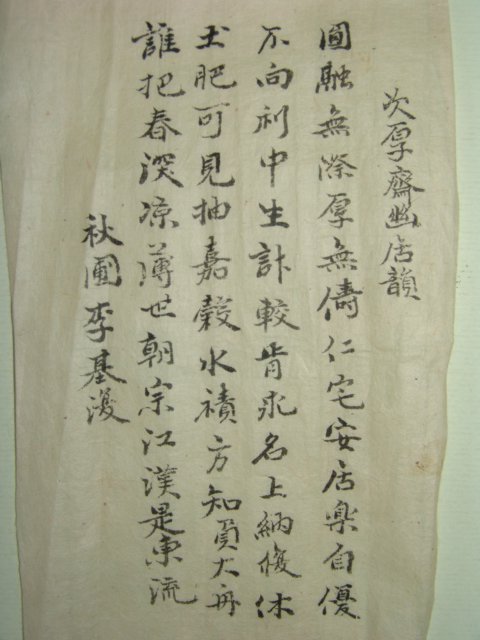 次厚齋幽居韻
圓融無際厚無儔仁宅安居樂自優
不向利中生計較肯求名上納復休
土肥可見抽嘉穀水積方知負大舟
誰把春深凉薄世朝宗江漢是東流
秋圃李基